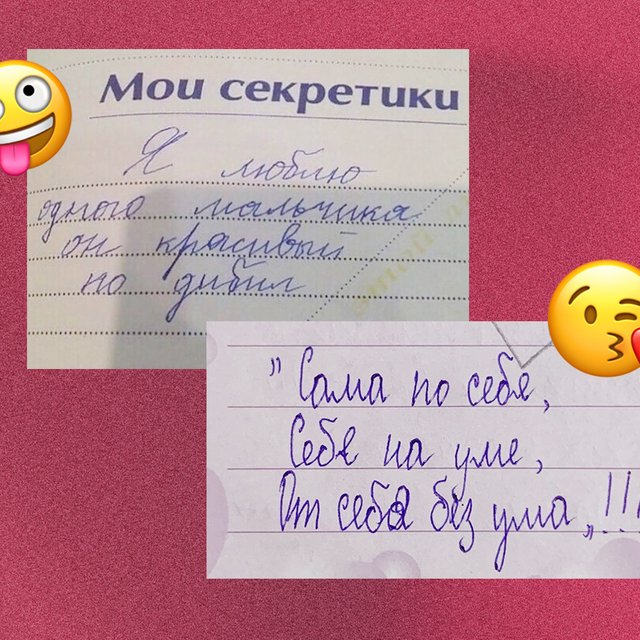 Мои секретики
Я люблю
одного мальчика
он красивый
но дибил
"Сама по себе,
Себе на уме,
От себя без ума„!!!